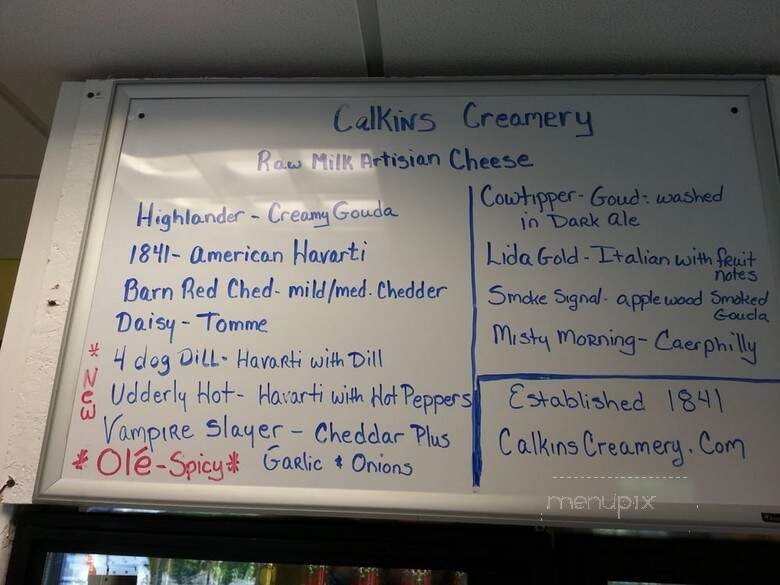 Calkins Creamery
Raw Milk Artisian Cheese
Highlander - Creamy Gouda
1841 - American Havarti
Barn Red Ched - mild/med. Chedder
Daisy - Tomme
* New
4 dog Dill - Havarti with Dill
Udderly Hot - Havarti with Hot Peppers
Vampire Slayer - Cheddar Plus
Garlic & Onions
*Olé - Spicy*
Cowtipper - Goud: washed
in Dark ale
Lida Gold - Italian with fruit
notes
Smoke Signal - applewood Smoked
Gouda
Misty Morning - Caerphilly
Established 1841
CalkinsCreamery.Com
menupix